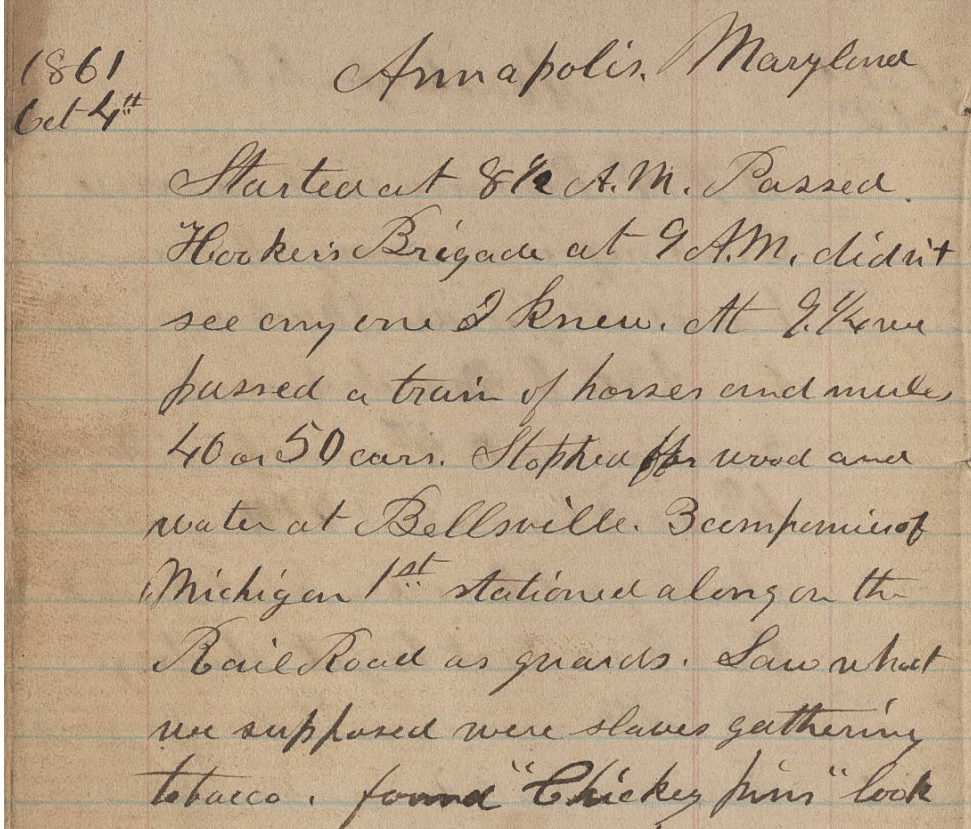 1861
Oct 4th
Annapolis. Maryland
Started at 8 1/2 A.M. Passed
Hooker's Brigade at 9 A.M. didn't
see any one I knew. At 9.1/4 we
passed a train of horses and mules
40 or 50 cars. Stopped for wood and
water at Bellsville. 3 companies of
Michigan 1st stationed along on the
Rail Road as guards. Saw what
we supposed were slaves gathering
tobacco. found "Chickey pins" look